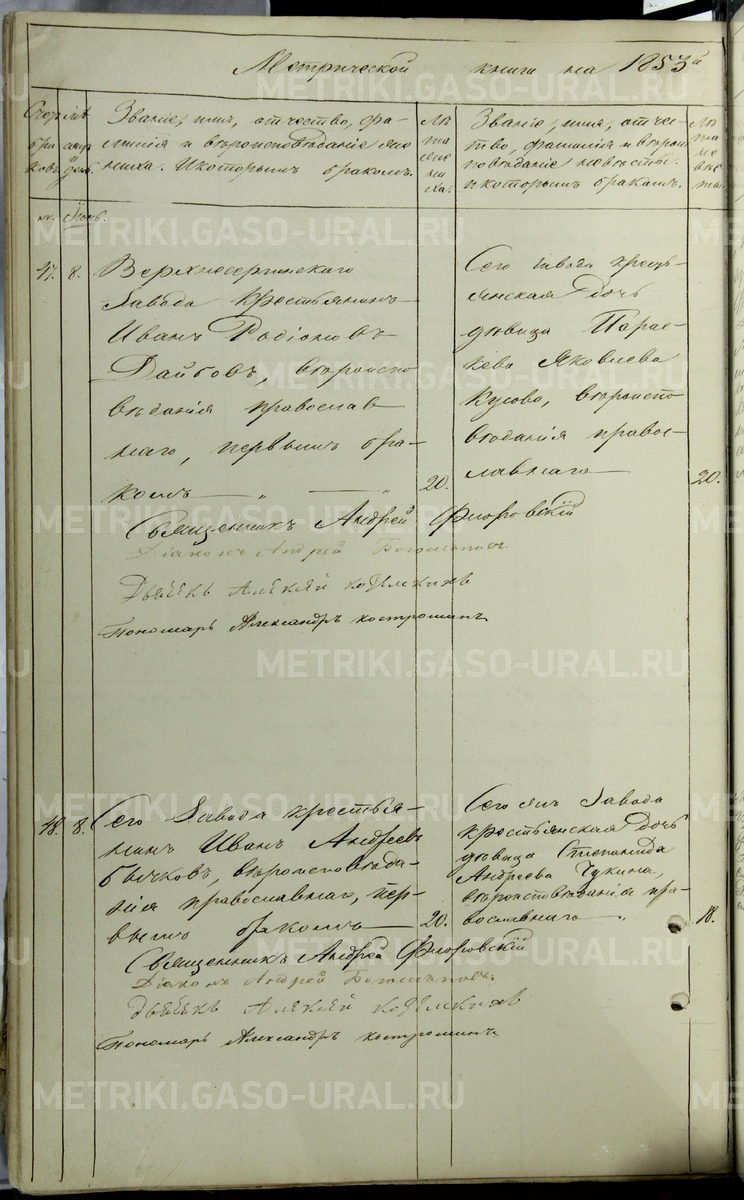 Метрической книги на 1853й
Счетъ бра ковъ.
Мѣ сяцъ и день.
Званіе, имя, отчество, фа-
милія и вѣроисповѣданіе же
ниха. И которымъ бракомъ.
Лѣ та же ни ха.
Званіе, имя, отче-
ство, фамилія и вѣрои
повѣданіе невѣсты.
и которымъ бракомъ.
Лѣ та не вѣс ты.
м. Іюнь.
47. 8.
Верхнесергинскаго
Завода крестьянинъ
Иванъ Родіоновъ
Дайбовъ, вѣроиспо
вѣданія православ
наго, первымъ бра-
комъ — „ — „ 20.
Сего завода кресть-
янская дочь
дѣвица Парас-
кева Яковлева
Кусова, вѣроиспо-
вѣданія правос-
лавнаго — 20.
Священникъ Андрей Флоровскій
Діаконъ Андрей
Дьячекъ Алексѣй
Пономарь Александръ Костроминъ
48. 8.
Сего Завода крестья-
нинъ Иванъ Андреевъ
Бычковъ, вѣроисповѣда-
нія православнаго, пер-
вымъ бракомъ — 20.
Сего же Завода
крестьянская дочь
дѣвица Степанида
Андреева Чукина,
вѣроисповѣданія пра-
вославнаго „ 18.
Священникъ Андрей Флоровскій
Діаконъ Андрей
Дьячекъ Алексѣй
Пономарь Александръ Костроминъ
METRIKI.GASO-URAL.RU